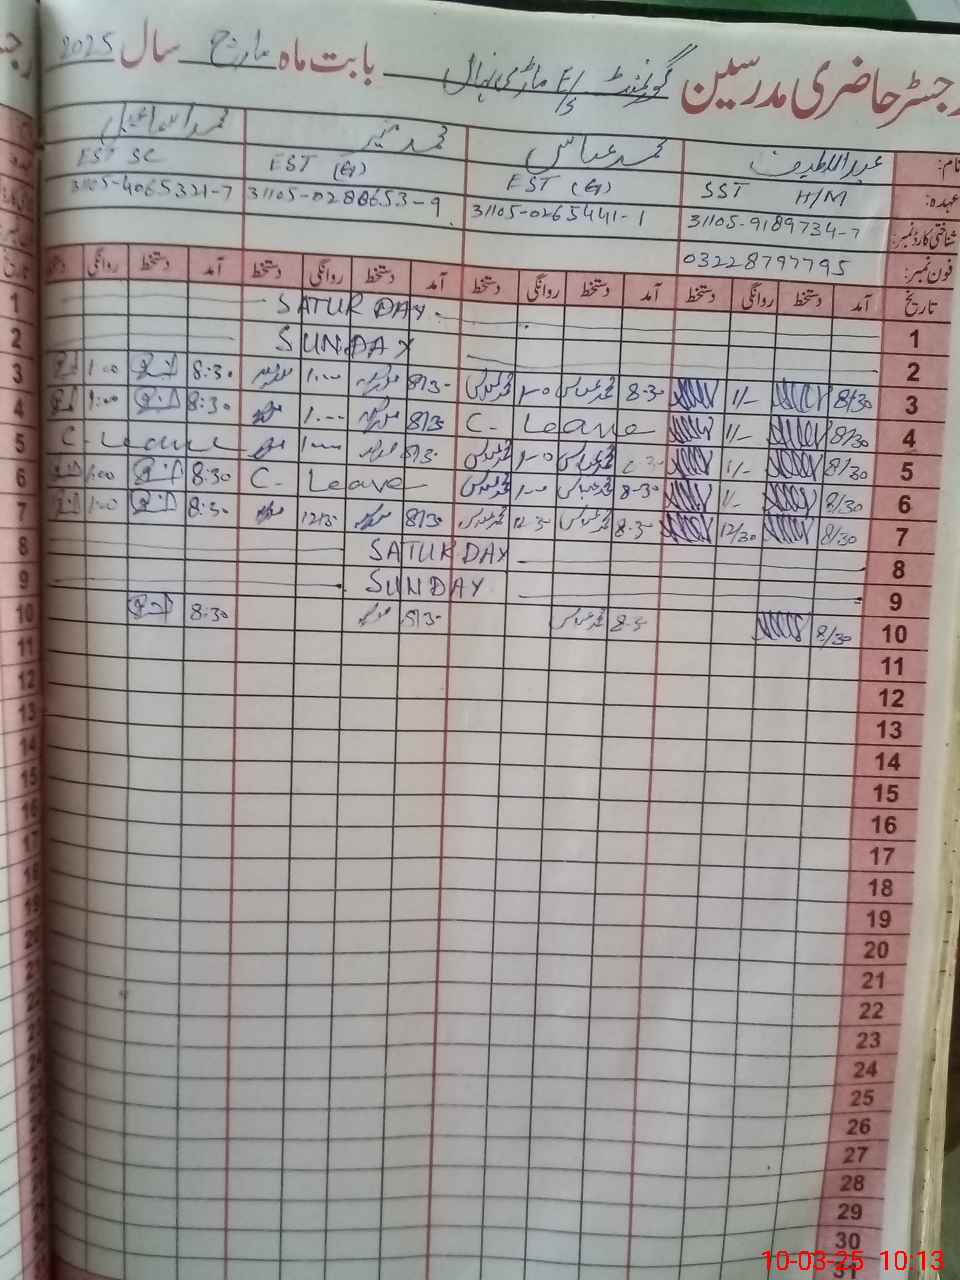 رجسٹر حاضری مدرسین گورنمنٹ E/S ماڑی نہال بابت ماہ مارچ سال 2025
نام: عبداللطیف محمد عباس محمد منیر محمد اسماعیل
عہدہ: SST H/M EST (G) EST (G) EST SC
شناختی کارڈ نمبر: 31105-9189734-7 31105-0265441-1 31105-0288653-9 31105-4065321-7
فون نمبر: 03228797795
تاریخ آمد دستخط روانگی دستخط آمد دستخط روانگی دستخط آمد دستخط روانگی دستخط آمد دستخط روانگی دستخط تاریخ
1 SATURDAY 1
2 SUNDAY 2
3 8/30 1/- محمد عباس 8-30 1-0 محمد عباس 8/30 1:00 8:30 1:00 3
4 8/30 1/- C- Leave 8/30 1:00 8:30 1:00 4
5 8/30 1/- محمد عباس 1-0 محمد عباس 8/30 1:00 C- Leave 5
6 8/30 1/- 8-30 محمد عباس 1-0 محمد عباس C- Leave 8:30 1:00 6
7 8/30 12/30 8-30 محمد عباس 12-30 محمد عباس 8/30 12/30 8:30 1:00 7
8 SATURDAY 8
9 SUNDAY 9
10 8/30 محمد عباس 8/30 8:30 10
11 11
12 12
13 13
14 14
15 15
16 16
17 17
18 18
19 19
20 20
21 21
22 22
23 23
24
25
26
27
28
29
30
31
10-03-25 10:13